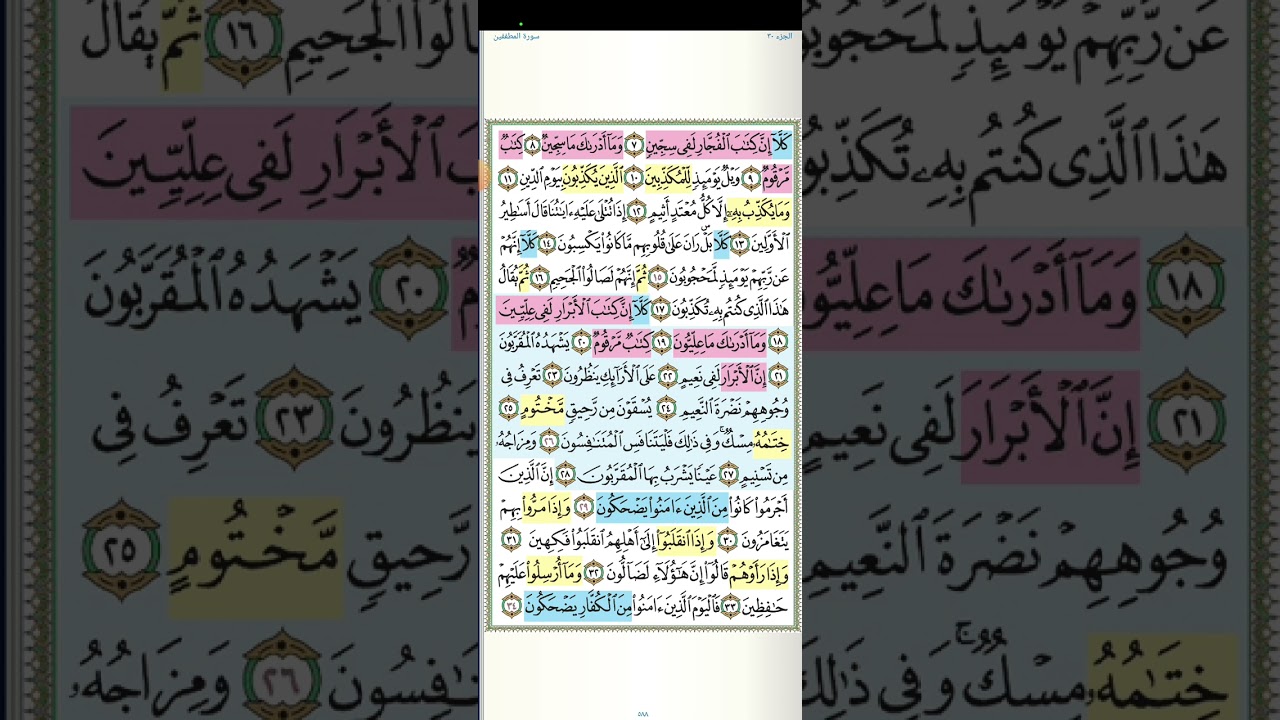 الجزء ٣٠
سورة المطففين
كَلَّآ إِنَّ كِتَٰبَ ٱلْفُجَّارِ لَفِى سِجِّينٍ ٧ وَمَآ أَدْرَىٰكَ مَا سِجِّينٌ ٨ كِتَٰبٌ
مَّرْقُومٌ ٩ وَيْلٌ يَوْمَئِذٍ لِّلْمُكَذِّبِينَ ١٠ ٱلَّذِينَ يُكَذِّبُونَ بِيَوْمِ ٱلدِّينِ ١١
وَمَا يُكَذِّبُ بِهِۦٓ إِلَّا كُلُّ مُعْتَدٍ أَثِيمٍ ١٢ إِذَا تُتْلَىٰ عَلَيْهِ ءَايَٰتُنَا قَالَ أَسَٰطِيرُ
ٱلْأَوَّلِينَ ١٣ كَلَّا ۖ بَلْ ۜ رَانَ عَلَىٰ قُلُوبِهِم مَّا كَانُوا۟ يَكْسِبُونَ ١٤ كَلَّآ إِنَّهُمْ
عَن رَّبِّهِمْ يَوْمَئِذٍ لَّمَحْجُوبُونَ ١٥ ثُمَّ إِنَّهُمْ لَصَالُوا۟ ٱلْجَحِيمِ ١٦ ثُمَّ يُقَالُ
هَٰذَا ٱلَّذِى كُنتُم بِهِۦ تُكَذِّبُونَ ١٧ كَلَّآ إِنَّ كِتَٰبَ ٱلْأَبْرَارِ لَفِى عِلِّيِّينَ
١٨ وَمَآ أَدْرَىٰكَ مَا عِلِّيُّونَ ١٩ كِتَٰبٌ مَّرْقُومٌ ٢٠ يَشْهَدُهُ ٱلْمُقَرَّبُونَ
٢١ إِنَّ ٱلْأَبْرَارَ لَفِى نَعِيمٍ ٢٢ عَلَى ٱلْأَرَآئِكِ يَنظُرُونَ ٢٣ تَعْرِفُ فِى
وُجُوهِهِمْ نَضْرَةَ ٱلنَّعِيمِ ٢٤ يُسْقَوْنَ مِن رَّحِيقٍ مَّخْتُومٍ ٢٥
خِتَٰمُهُۥ مِسْكٌ ۚ وَفِى ذَٰلِكَ فَلْيَتَنَافَسِ ٱلْمُتَنَٰفِسُونَ ٢٦ وَمِزَاجُهُۥ
مِن تَسْنِيمٍ ٢٧ عَيْنًا يَشْرَبُ بِهَا ٱلْمُقَرَّبُونَ ٢٨ إِنَّ ٱلَّذِينَ
أَجْرَمُوا۟ كَانُوا۟ مِنَ ٱلَّذِينَ ءَامَنُوا۟ يَضْحَكُونَ ٢٩ وَإِذَا مَرُّوا۟ بِهِمْ
يَتَغَامَزُونَ ٣٠ وَإِذَا ٱنقَلَبُوٓا۟ إِلَىٰٓ أَهْلِهِمُ ٱنقَلَبُوا۟ فَكِهِينَ ٣١
وَإِذَا رَأَوْهُمْ قَالُوٓا۟ إِنَّ هَٰٓؤُلَآءِ لَضَآلُّونَ ٣٢ وَمَآ أُرْسِلُوا۟ عَلَيْهِمْ
حَٰفِظِينَ ٣٣ فَٱلْيَوْمَ ٱلَّذِينَ ءَامَنُوا۟ مِنَ ٱلْكُفَّارِ يَضْحَكُونَ ٣٤
٥٨٨